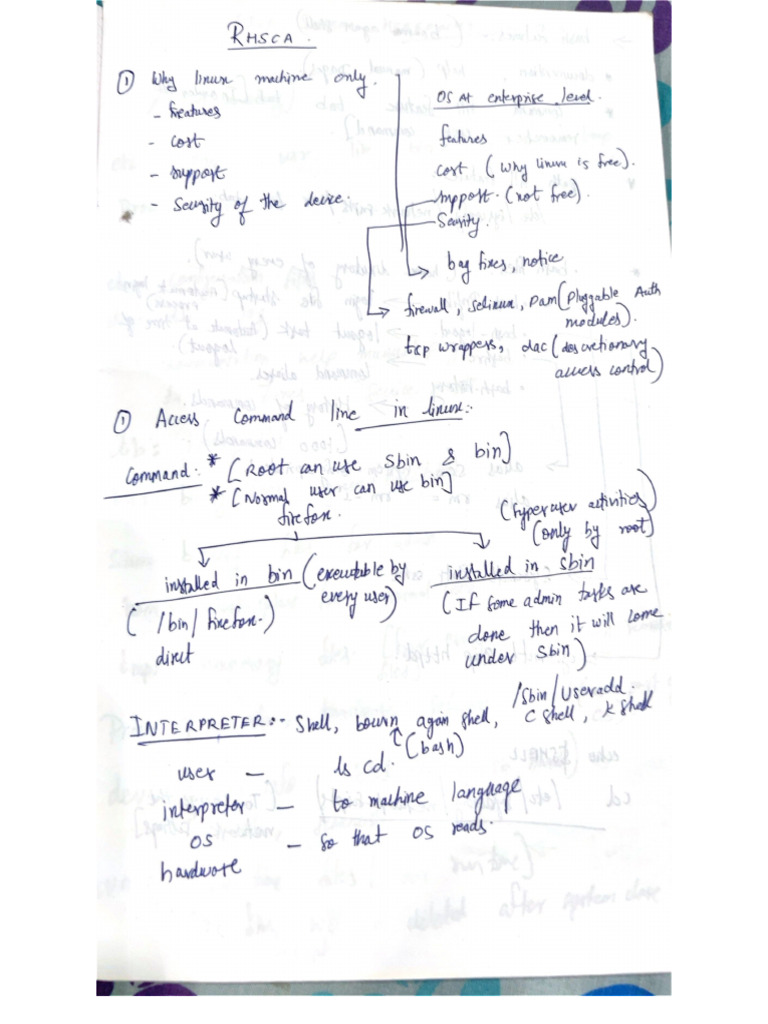 RHSCA.
① Why linux machine only.
- features
- cost
- support
- Security of the device.
OS At enterprise level.
features
cost (why linux is free).
support. (not free).
Security.
bag fixes, notice
firewall, selinux, Pam (Pluggable Auth
modules).
tcp wrappers, dac (discretionary
access control)
① Access Command line in linux:-
Command:- * [Root can use sbin & bin]
* [Normal user can use bin]
firefox.
(hyperuser activities)
(only by root)
installed in bin (executable by
every user)
(/bin/firefox.)
direct
installed in sbin
(If some admin tasks are
done then it will come
under sbin)
/sbin/useradd.
INTERPRETER:- Shell, bourn again shell, C shell, K shell
(bash)
user - ls cd.
interpreter - to machine language
OS - so that OS reads.
hardware